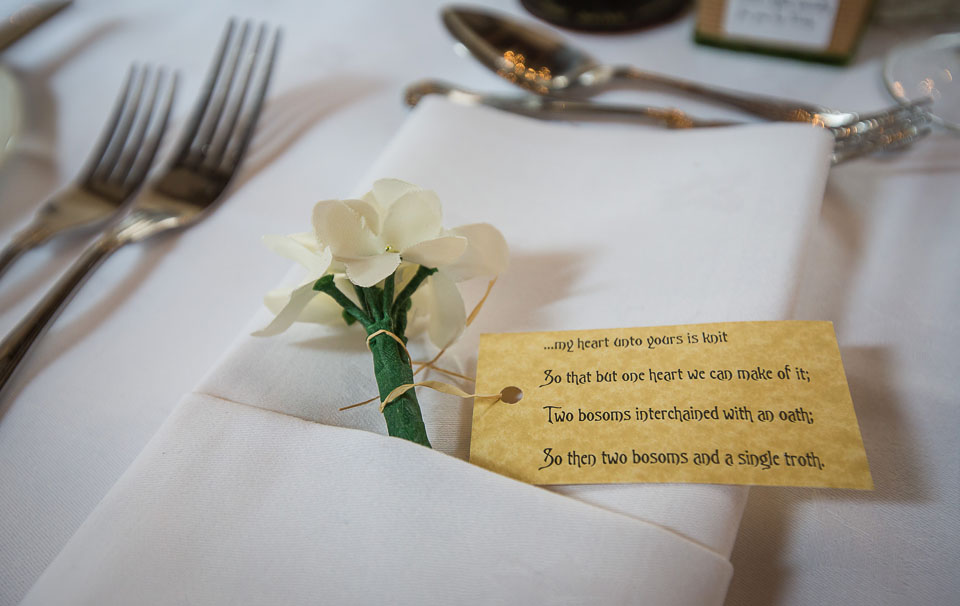 ...my heart unto yours is knit
So that but one heart we can make of it;
Two bosoms interchained with an oath;
So then two bosoms and a single troth.